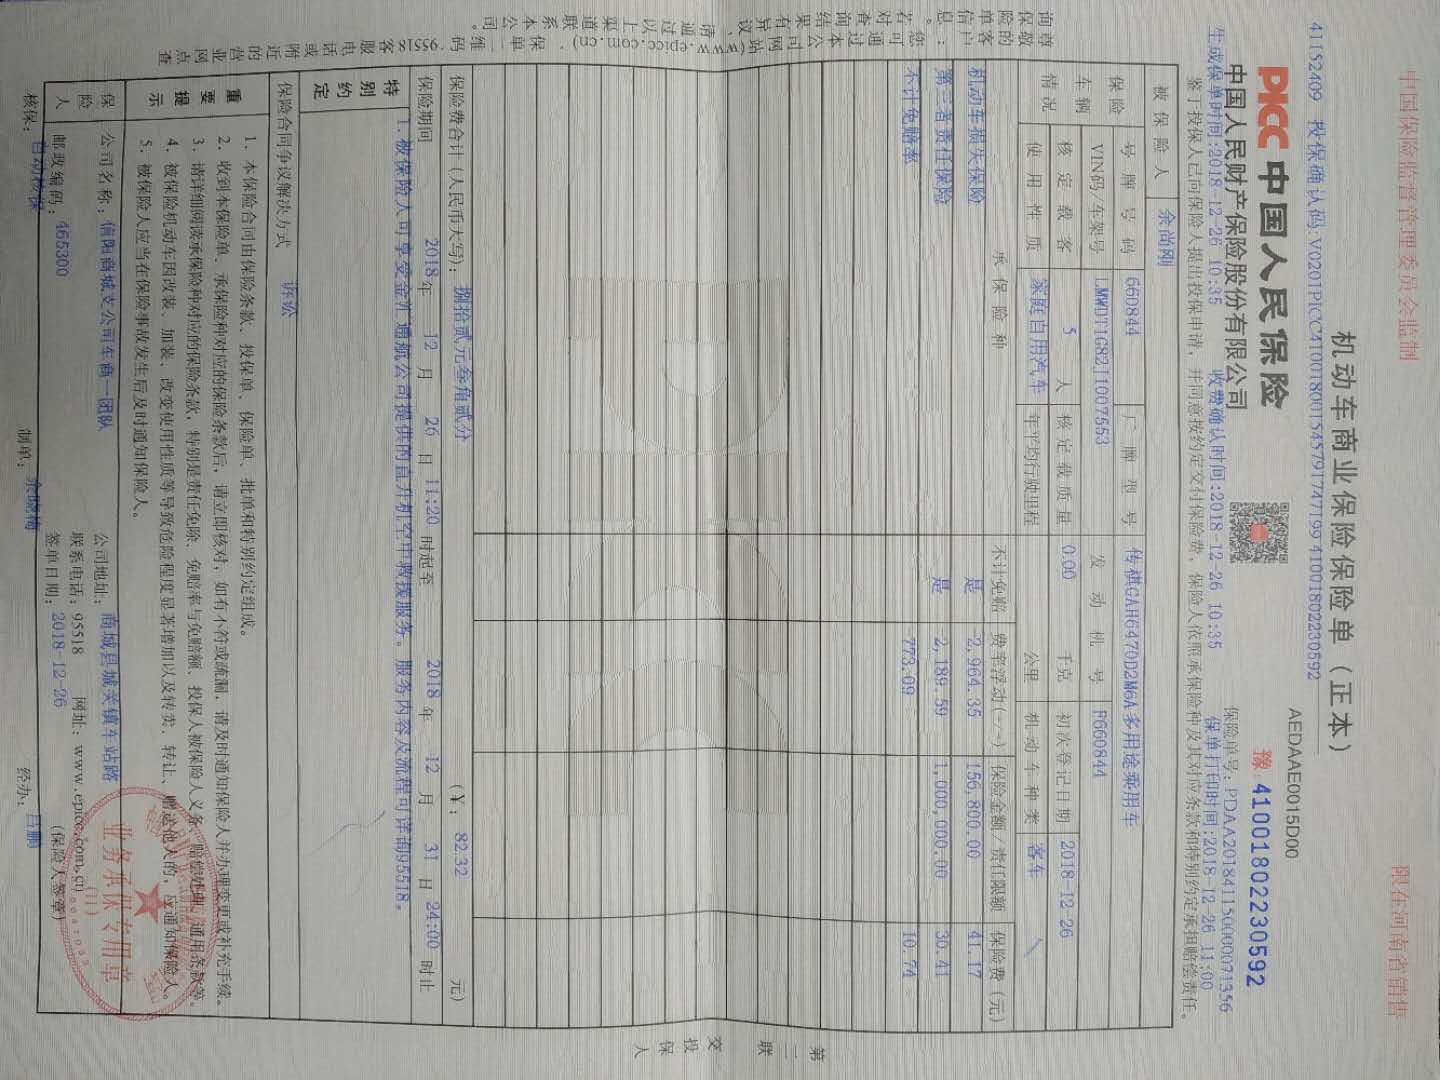 中国保险监督管理委员会监制
限在河南省销售
机动车商业保险保险单（正本）
AEDAAE0015D00
41152409 投保确认码:V0201PICC410018001545791747199 41001802230592
PICC 中国人民保险
中国人民财产保险股份有限公司
豫:41001802230592
保险单号:PDAA201841150000071356
生成保单时间:2018-12-26 10:35 收费确认时间:2018-12-26 10:35 保单打印时间:2018-12-26 11:00
鉴于投保人已向保险人提出投保申请，并同意按约定交付保险费，保险人依照承保险种及其对应条款和特别约定承担赔偿责任。
被保险人 余尚刚
保险车辆情况
号牌号码 660844 厂牌型号 传祺GAH6470D2M6A多用途乘用车
VIN码/车架号 LMWDT1G82J1007553 发动机号 F660844
核定载客 5 人 核定载质量 0.00 千克 初次登记日期 2018-12-26
使用性质 家庭自用汽车 年平均行驶里程 公里 机动车种类 客车
承保险种 不计免赔 费率浮动(+/-) 保险金额/责任限额 保险费(元)
机动车损失保险 是 2,964.35 156,800.00 41.17
第三者责任保险 是 2,189.59 1,000,000.00 30.41
不计免赔率 773.09 10.74
保险费合计（人民币大写）： 捌拾贰元叁角贰分 （¥： 82.32 元）
保险期间 2018 年 12 月 26 日 11:20 时起至 2018 年 12 月 31 日 24:00 时止
特别约定
1.被保险人可享受金汇通航公司提供的直升机空中救援服务。服务内容及流程可详询95518。
保险合同争议解决方式 诉讼
重要提示
1、本保险合同由保险条款、投保单、保险单、批单和特别约定组成。
2、收到本保险单、承保险种对应的保险条款后，请立即核对，如有不符或疏漏，请及时通知保险人并办理变更或补充手续。
3、请详细阅读承保险种对应的保险条款，特别是责任免除、免赔率与免赔额、投保人被保险人义务、赔偿处理、通用条款等。
4、被保险机动车因改装、加装、改变使用性质等导致危险程度显著增加以及转卖、转让、赠送他人的，应通知保险人。
5、被保险人应当在保险事故发生后及时通知保险人。
保险人
公司名称：信阳商城支公司车商一团队 公司地址：商城县城关镇车站路
邮政编码：465300 联系电话：95518 网址：www.epicc.com.cn
签单日期：2018-12-26 （保险人签章）
核保：自动核保 制单：余晓梅 经办：吕鹏
业务承保专用章
(11)
第二联 交投保人
尊敬的客户：您可通过本公司网站(www.epicc.com.cn)、保单二维码、95518客服电话或附近的营业网点查
询保险单信息。若对查询结果有异议，请通过以上渠道联系本公司。